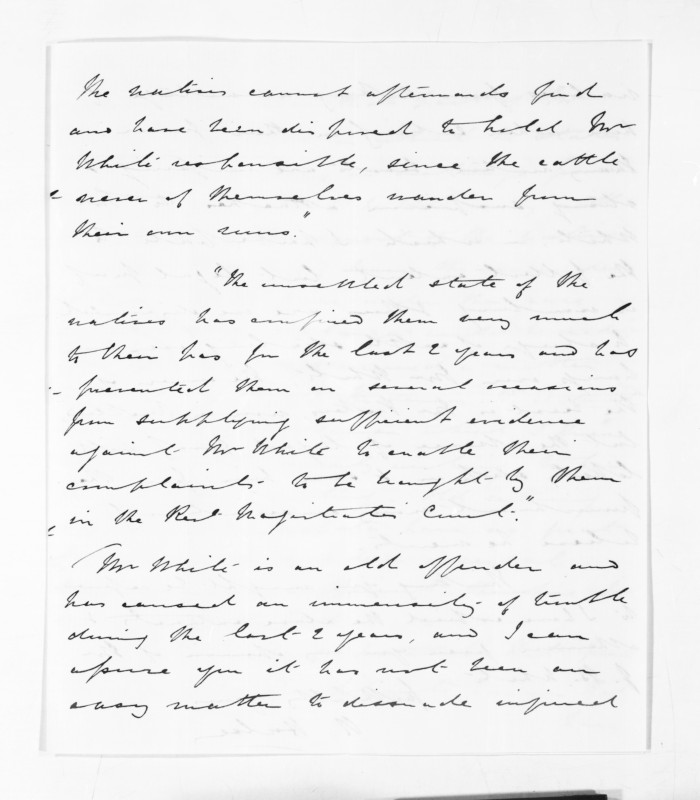 the natives cannot afterwards find
and have been disposed to hold Mr
White responsible, since the cattle
never of themselves wander from
their own runs."
"The unsettled state of the
natives has confined them very much
to their pas for the last 2 years and has
prevented them on several occasions
from supplying sufficient evidence
against Mr White to enable their
complaints to be brought by them
in the Resdt Magistrates Court."
Mr White is an old offender and
has caused an immensity of trouble
during the last 2 years, and I can
assure you it has not been an
easy matter to dissuade injured